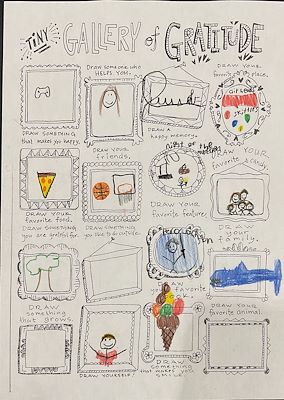 TINY GALLERY of GRATITUDE
DRAW SOMETHING
that makes you happy.
DRAW SOMEONE who
HELPS YOU.
DRAW A
happy memory.
DRAW YOUR
favorite place.
DRAW YOUR
favorite food.
DRAW YOUR
friends.
DRAW YOUR
favorite feature.
DRAW YOUR
favorite candy.
DRAW SOMETHING
you are grateful for.
DRAW SOMETHING
you like to do outside.
DRAW
YOUR
family.
DRAW
something
that grows.
DRAW YOURSELF!
DRAW
something
that makes you
SMILE.
DRAW YOUR
favorite animal.